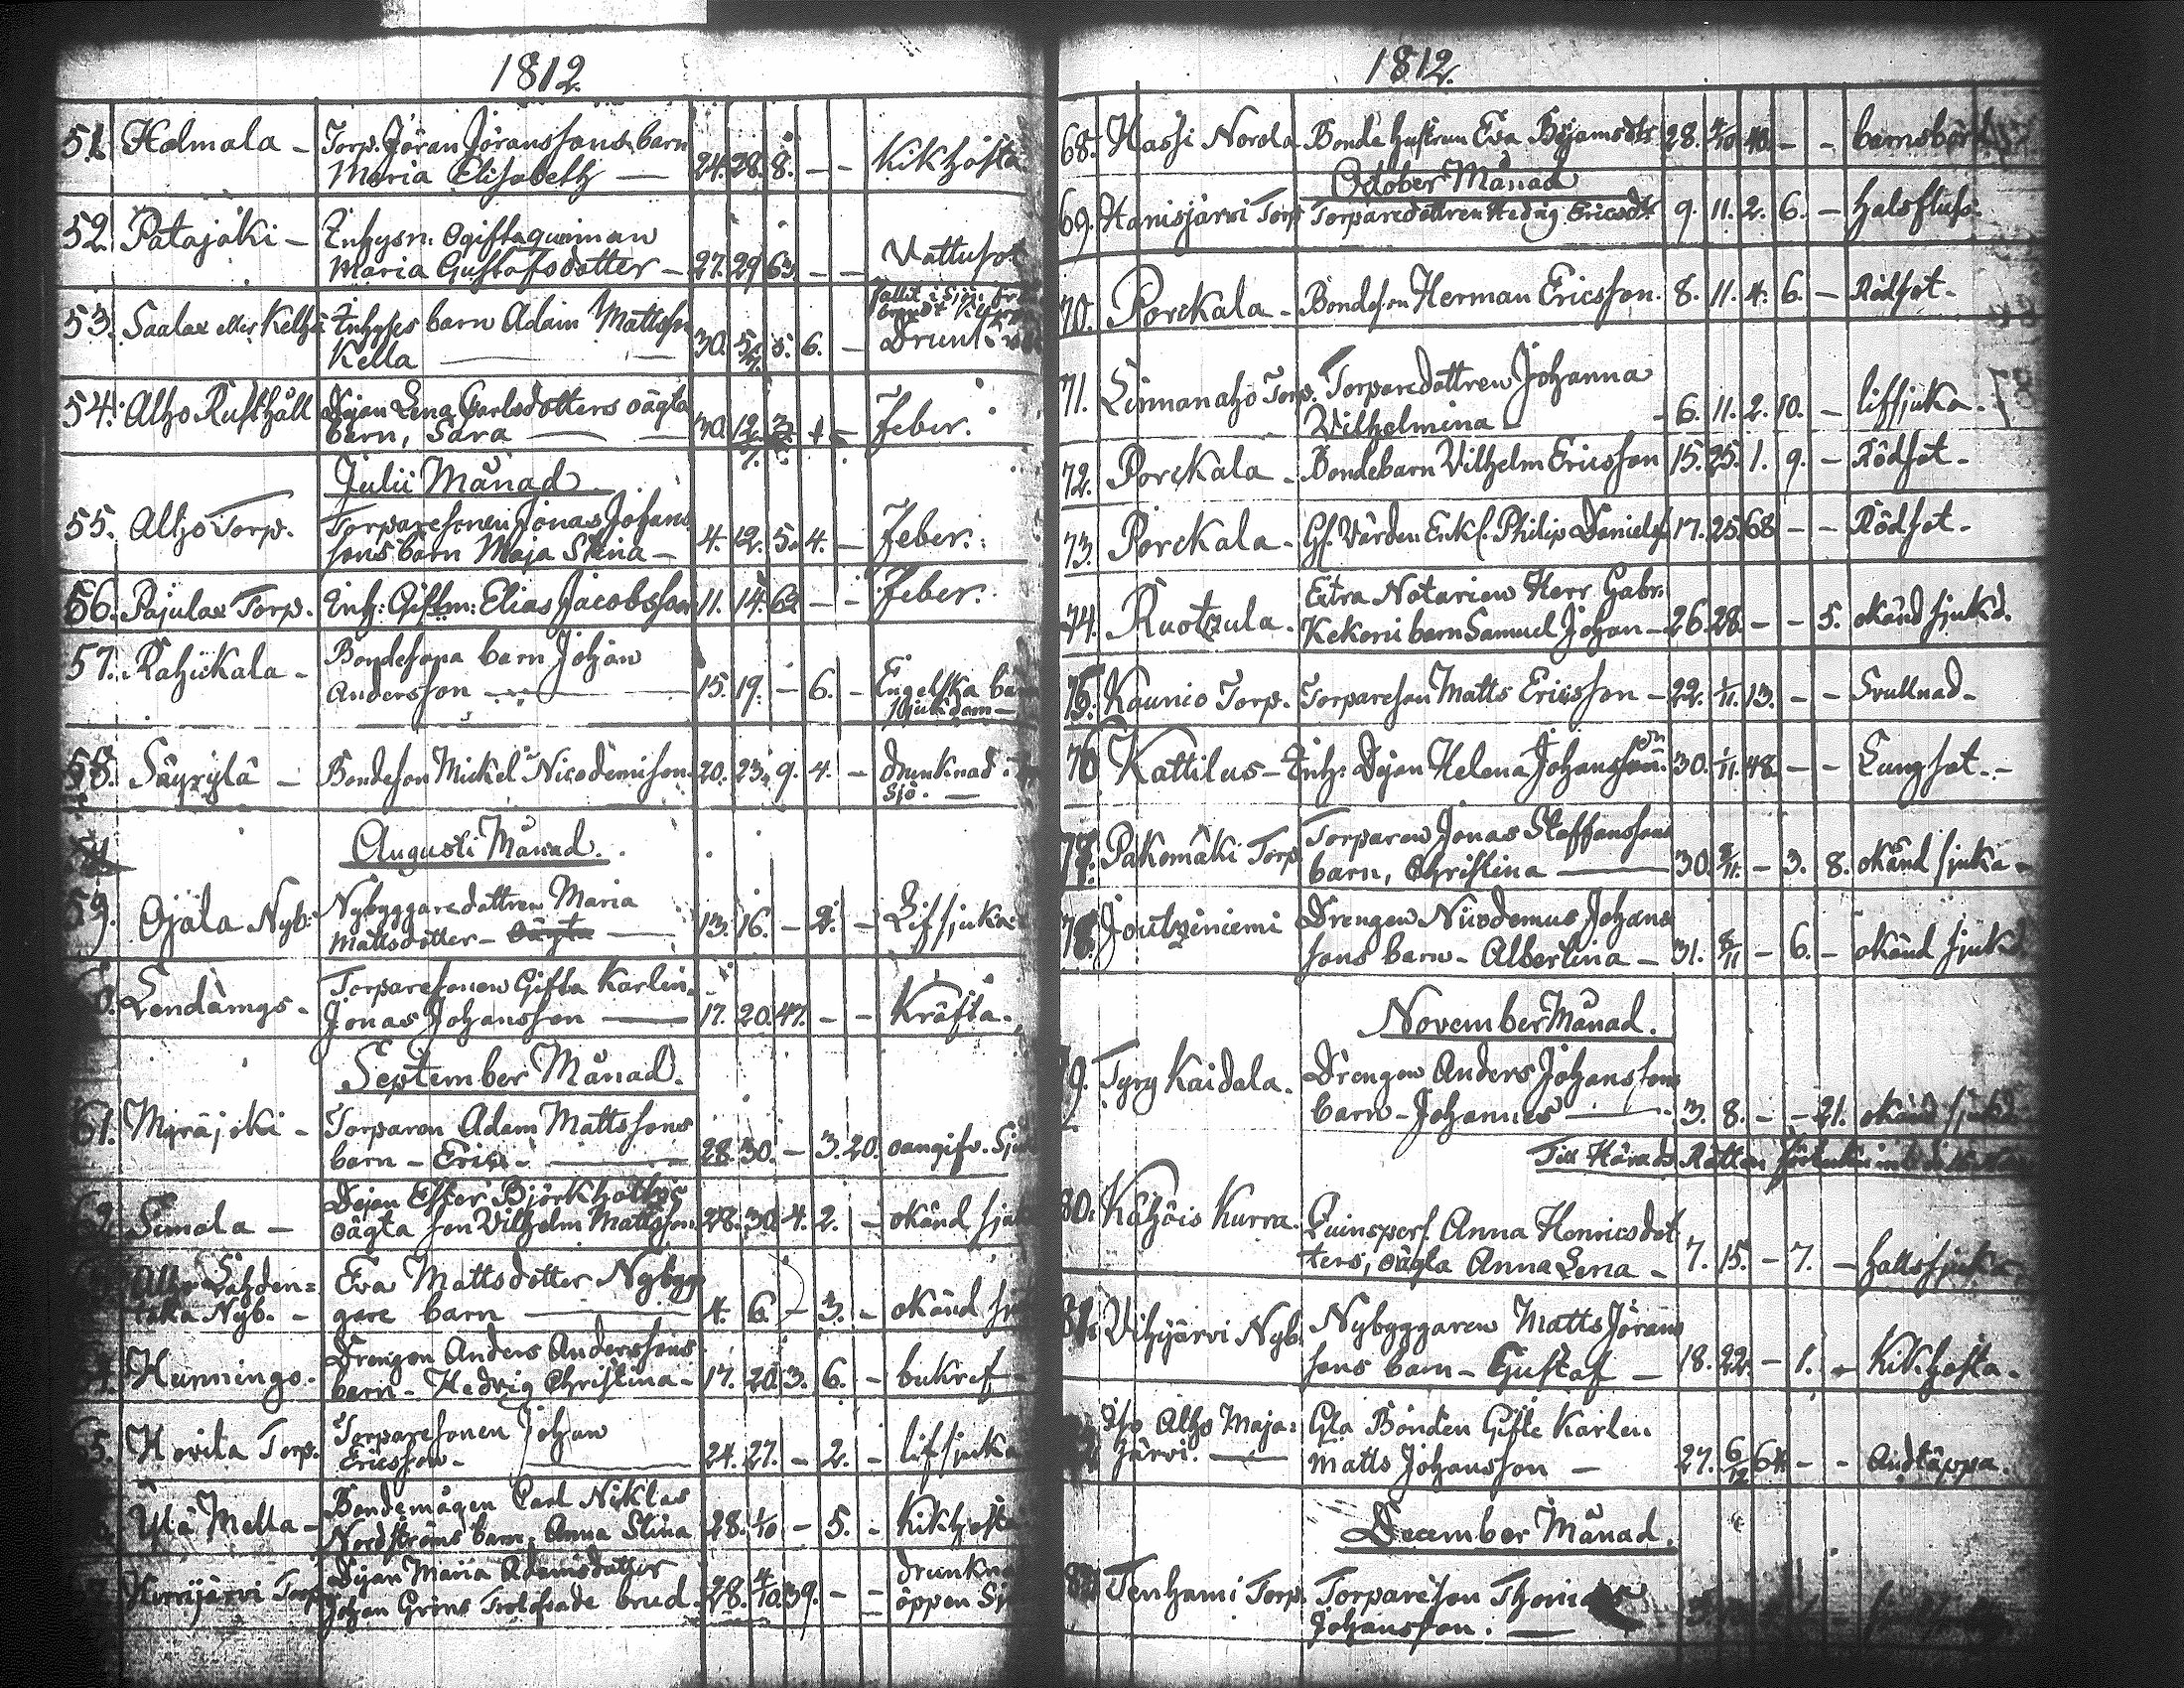 1812.
51. Holmala - Torp. Jöran Jöranssons barn
Maria Elisabeth — 24. 28. 8. - - Kikhosta
52. Patajoki - Inhysn: Ogifta quinnan
Maria Gustafsdotter - 27. 29. 63. - - Vattusot
53. Saalax eller Kelhä Inhyses barn Adam Mattsson
Kella — 30. 5/7. 5. 6. - Drunk
54. Alho Rusthåll Dejan Lena Carlsdotters oägta
barn, Sara — 30. 12/7. Feber.
Julii Månad
55. Alho Torp. Torparesonen Jonas Johans
sons barn Maja Stina - 4. 12. 5. 4. - Feber.
56. Pajulax Torp. Inh: Giftm: Elias Jacobsson 11. 14. 62 - - Feber.
57. Rahikkala - Bondesona barn Johan
Andersson — 15. 19. - 6. - Engelska
sjukdom -
58. Säyrylä - Bondeson Mickel Nicodemisson 20. 23. 9. 4. - drunknad i
sjö. -
Augusti Månad.
59. Ojala Nyb: Nybyggaredottren Maria
Mattsdotter - 13. 16. - 2. - Lifsjuka
Lendämgs - Torparesonen Gifta Karlen
Jonas Johansson — 17. 20. 47. - - Kräfta.
September Månad.
61. Myräjoki - Torparen Adam Mattssons
barn - Eric - 28. 30. - 3. 20. oangifv. Sjuk
62. Simola - Dejan Ester Björkholtys
oägta son Vilhelm Mattsson 28. 30. 4. 2. - okänd sjuk
Alho Lahden=
taka Nyb. - Eva Mattsdotter Nybyg
gare barn — 4. 6. - 3. - okänd
Hunnings - Drengen Anders Anderssons
barn - Hedvig Christina - 17. 20. 3. 6. - bukref
Hovila Torp. Torparesonen Johan
Ericsson - 24. 27. - 2. - lifsjuka
Ylä Mella - Bondemågen Carl Niklas
Nordströms barn, Anna Stina 28. 1/10 - 5. - Kikhosta
Torp Dejan Maria Adamsdotter
Johan Gröns Trolofvade brud. 28. 4/10. 39. - - drunkna
öppen Sjö
1812.
68. Hassi Norola Bonde hustrun Eva Bejamsdtr 28. 4/10 40. - - barnsbörd
October Månad
69. Hanisjärvi Torp Torparedottren Hedvig Ericsdtr 9. 11. 2. 6. - halsflusz
70. Porckala - Bondeson Herman Ericsson. 8. 11. 4. 6. - Rödsot -
71. Linnanaho Torp. Torparedottren Johanna
Vilhelmina - 6. 11. 2. 10. - lifsjuka.
72. Porckala - Bondebarn Vilhelm Ericsson 15. 25. 1. 9. - Rödsot -
73. Porckala - Gf. Värden Enkl. Philip Daniels 17. 25. 68 - - Rödsot -
74. Ruotzula - Extra Notarien Herr Gabr.
Kekoni barn Samuel Johan - 26. 28. - - 5. okänd sjukd.
75. Kaunio Torp. Torpareson Matts Ericsson - 22. 1/11. 13. - - Svullnad -
76 Kattilus - Inh: Dejan Helena Johansson. 30. 1/11. 48. - - Lungsot. -
77. Pakomäki Torp Torparen Jonas Staffanssons
barn, Christina — 30. 8/11. - 3. 8. okänd sjuka -
78. Joutzeniemi Drengen Nicodemus Johans
sons barn - Albertina - 31. 8/11 - 6. - okänd sjuk
November Månad.
79. Tyry Kaidala. Drengen Anders Johanssons
barn - Johannes — 3. 8. - - 21. okänd sjukd
Till Härads Rätten
80. Kähöis Kurra. Quinspers. Anna Henricsdot
ters, oägta Anna Lena - 7. 15. - 7. - hallssjuka
81. Vihjärvi Nyb. Nybyggaren Matts Jörans
sons barn - Gustaf - 18. 22. - 1. - Kikhosta.
Iso Alho Maja=
järvi. — Gla Bonden Gifte Karlen
Matts Johansson - 27. 6/12 64. - - Andtäppa.
December Månad.
83. Tenhami Torp. Torpareson Thomas
Johansson. —